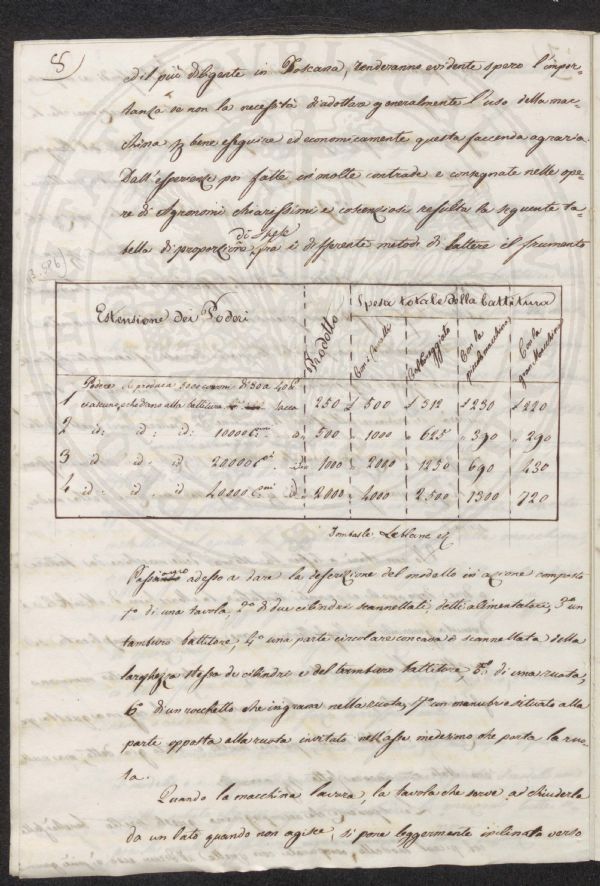 8
ed il più diligente in Toscana, renderanno evidente spero l'impor-
tanza se non la necessità d'adottare generalmente l'uso della mac-
china p bene eseguire ed economicamente questa faccenda agraria.
Dall'esperienze poi fatte in molte contrade e consegnate nelle ope-
re di Agronomi chiarissimi e coscenziosi resulta la seguente ta-
di Spese
bella di proporzione fra i differente metodi di battere il frumento
Estensione dei Poderi Prodotto Spesa totale della battitura
Con i Cavalli Col Coreggiato Con la piccola macchina Con la gran Macchina
1 Podere che produca 5000 covoni di 30 a 40
ciascuno, che dano alla battitura sacca 250 £ 500 £ 312 £ 230 £ 220
2 id: id: id: 10000 C.oni id. 500 " 1000 " 625 " 390 " 290
3 id id: id 20000 C.oni id. 1000 " 2000 " 1250 " 690 " 430
4 id: id: id 40000 C.oni id: 2000 " 4000 " 2500 " 1300 " 720
Leblanc
Passiamo adesso a dare la descrizione del modello in azione composto
1.° di una tavola, 2.° di due cilindri scannellati detti alimentatore, 3.° un
tamburo battitore, 4.° una parte circolare concava e scannellata della
larghezza stessa de cilindri e del tamburo battitore, 5.° di una ruota,
6.° di un rocchetto che ingrana nella ruota, 7.° un manubrio situato alla
parte opposta alla ruota invitato nell'asse medesimo che porta la ruo-
ta.
Quando la macchina lavora, la tavola che serve ad chiuderla
da un lato quando non agisce, si pone leggermente inclinata verso